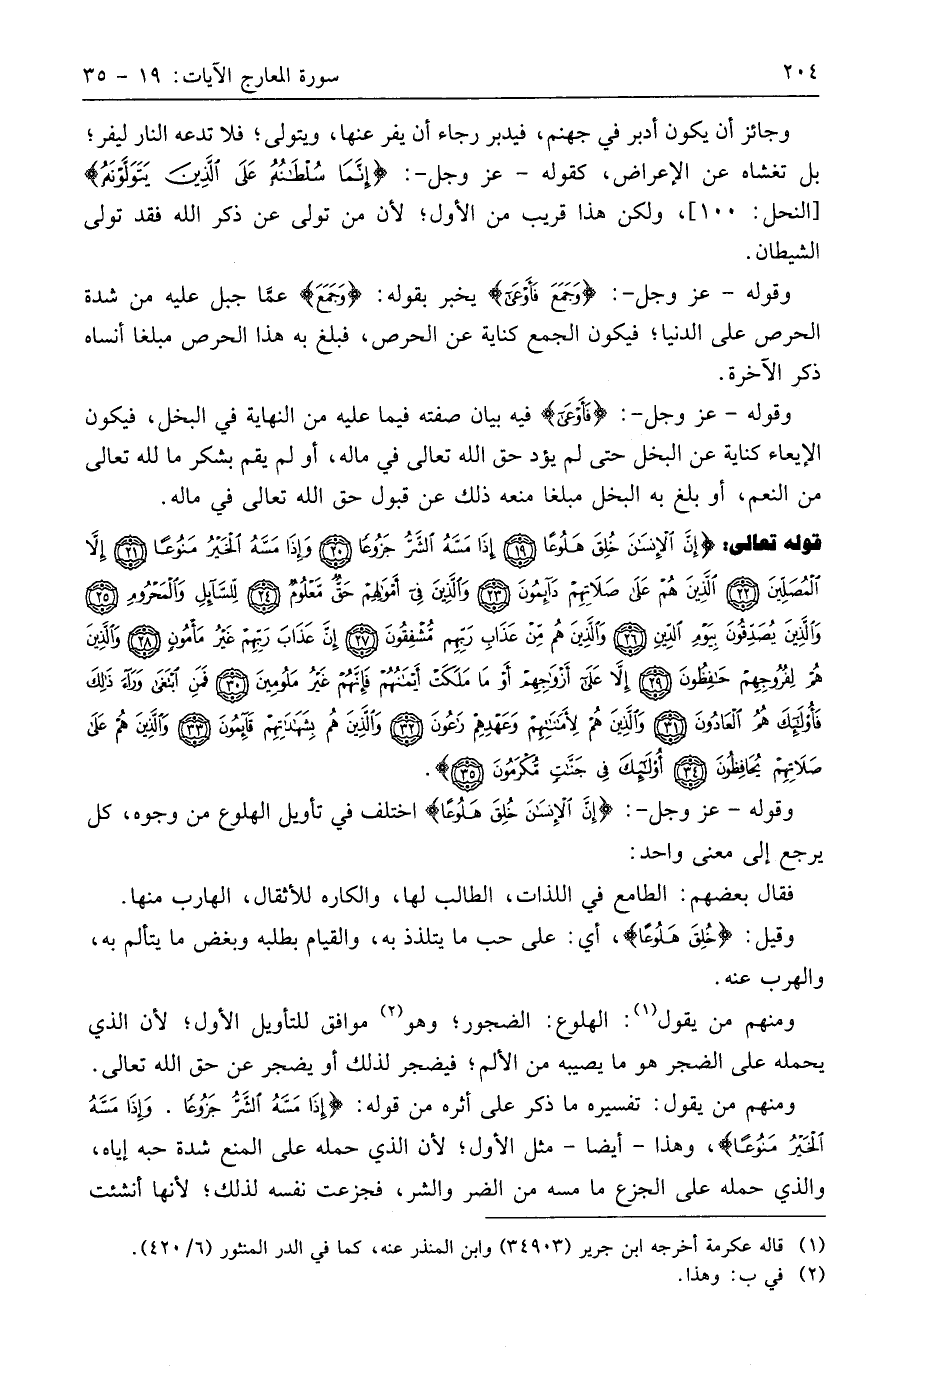 ٢٠٤ سورة المعارج الآيات: ١٩ - ٣٥
وجائز أن يكون أدبر في جهنم، فيدبر رجاء أن يفر عنها، ويتولى؛ فلا تدعه النار ليفر؛
بل تغشاه عن الإعراض، كقوله - عز وجل-: ﴿إِنَّمَا سُلْطَٰنُهُۥ عَلَى ٱلَّذِينَ يَتَوَلَّوْنَهُۥ﴾
[النحل: ١٠٠]، ولكن هذا قريب من الأول؛ لأن من تولى عن ذكر الله فقد تولى
الشيطان.
وقوله - عز وجل-: ﴿وَجَمَعَ فَأَوْعَىٰٓ﴾ يخبر بقوله: ﴿وَجَمَعَ﴾ عمَّا جبل عليه من شدة
الحرص على الدنيا؛ فيكون الجمع كناية عن الحرص، فبلغ به هذا الحرص مبلغا أنساه
ذكر الآخرة.
وقوله - عز وجل-: ﴿فَأَوْعَىٰٓ﴾ فيه بيان صفته فيما عليه من النهاية في البخل، فيكون
الإيعاء كناية عن البخل حتى لم يؤد حق الله تعالى في ماله، أو لم يقم بشكر ما لله تعالى
من النعم، أو بلغ به البخل مبلغا منعه ذلك عن قبول حق الله تعالى في ماله.
قوله تعالى: ﴿إِنَّ ٱلْإِنسَٰنَ خُلِقَ هَلُوعًا ١٩ إِذَا مَسَّهُ ٱلشَّرُّ جَزُوعًا ٢٠ وَإِذَا مَسَّهُ ٱلْخَيْرُ مَنُوعًا ٢١ إِلَّا
ٱلْمُصَلِّينَ ٢٢ ٱلَّذِينَ هُمْ عَلَىٰ صَلَاتِهِمْ دَآئِمُونَ ٢٣ وَٱلَّذِينَ فِىٓ أَمْوَٰلِهِمْ حَقٌّ مَّعْلُومٌ ٢٤ لِّلسَّآئِلِ وَٱلْمَحْرُومِ ٢٥
وَٱلَّذِينَ يُصَدِّقُونَ بِيَوْمِ ٱلدِّينِ ٢٦ وَٱلَّذِينَ هُم مِّنْ عَذَابِ رَبِّهِم مُّشْفِقُونَ ٢٧ إِنَّ عَذَابَ رَبِّهِمْ غَيْرُ مَأْمُونٍ ٢٨ وَٱلَّذِينَ
هُمْ لِفُرُوجِهِمْ حَٰفِظُونَ ٢٩ إِلَّا عَلَىٰٓ أَزْوَٰجِهِمْ أَوْ مَا مَلَكَتْ أَيْمَٰنُهُمْ فَإِنَّهُمْ غَيْرُ مَلُومِينَ ٣٠ فَمَنِ ٱبْتَغَىٰ وَرَآءَ ذَٰلِكَ
فَأُو۟لَٰٓئِكَ هُمُ ٱلْعَادُونَ ٣١ وَٱلَّذِينَ هُمْ لِأَمَٰنَٰتِهِمْ وَعَهْدِهِمْ رَٰعُونَ ٣٢ وَٱلَّذِينَ هُم بِشَهَٰدَٰتِهِمْ قَآئِمُونَ ٣٣ وَٱلَّذِينَ هُمْ عَلَىٰ
صَلَاتِهِمْ يُحَافِظُونَ ٣٤ أُو۟لَٰٓئِكَ فِى جَنَّٰتٍ مُّكْرَمُونَ ٣٥﴾.
وقوله - عز وجل-: ﴿إِنَّ ٱلْإِنسَٰنَ خُلِقَ هَلُوعًا﴾ اختلف في تأويل الهلوع من وجوه، كل
يرجع إلى معنى واحد:
فقال بعضهم: الطامع في اللذات، الطالب لها، والكاره للأثقال، الهارب منها.
وقيل: ﴿خُلِقَ هَلُوعًا﴾، أي: على حب ما يتلذذ به، والقيام بطلبه وبغض ما يتألم به،
والهرب عنه.
ومنهم من يقول(١): الهلوع: الضجور؛ وهو(٢) موافق للتأويل الأول؛ لأن الذي
يحمله على الضجر هو ما يصيبه من الألم؛ فيضجر لذلك أو يضجر عن حق الله تعالى.
ومنهم من يقول: تفسيره ما ذكر على أثره من قوله: ﴿إِذَا مَسَّهُ ٱلشَّرُّ جَزُوعًا . وَإِذَا مَسَّهُ
ٱلْخَيْرُ مَنُوعًا﴾، وهذا - أيضا - مثل الأول؛ لأن الذي حمله على المنع شدة حبه إياه،
والذي حمله على الجزع ما مسه من الضر والشر، فجزعت نفسه لذلك؛ لأنها أنشئت
(١) قاله عكرمة أخرجه ابن جرير (٣٤٩٠٣) وابن المنذر عنه، كما في الدر المنثور (٤٢٠/٦).
(٢) في ب: وهذا.